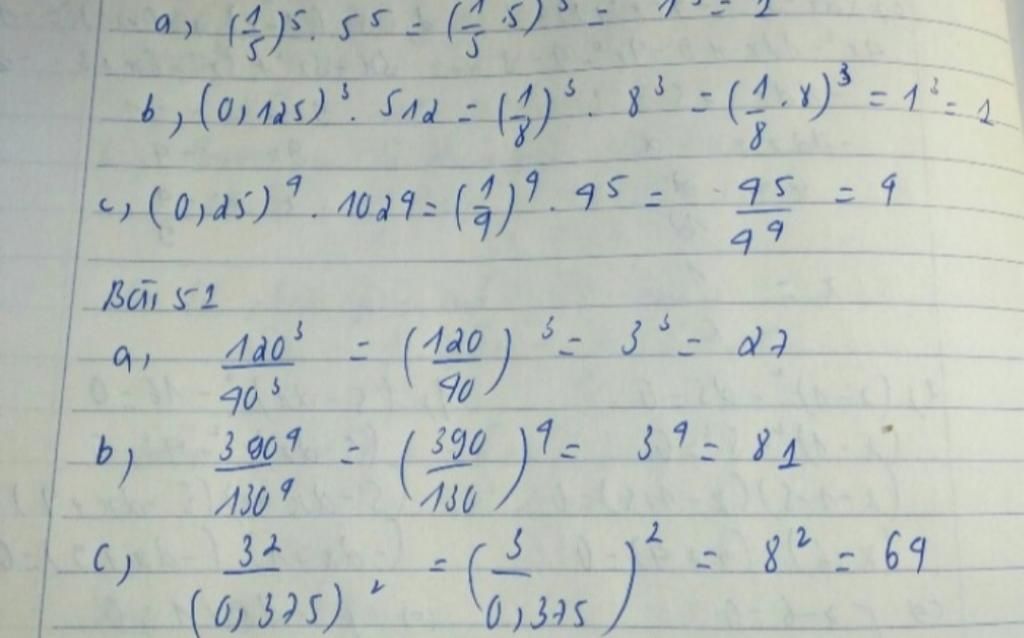 a, (1/5)⁵ . 5⁵ = (1/5 . 5)⁵ = 1⁵ = 1
b, (0,125)³ . 512 = (1/8)³ . 8³ = (1/8 . 8)³ = 1³ = 1
c, (0,25)⁴ . 1024 = (1/4)⁴ . 4⁵ = 4⁵/4⁴ = 4
Bài 51
a, 120³/40³ = (120/40)³ = 3³ = 27
b, 390⁴/130⁴ = (390/130)⁴ = 3⁴ = 81
c, 3²/(0,375)² = (3/0,375)² = 8² = 64